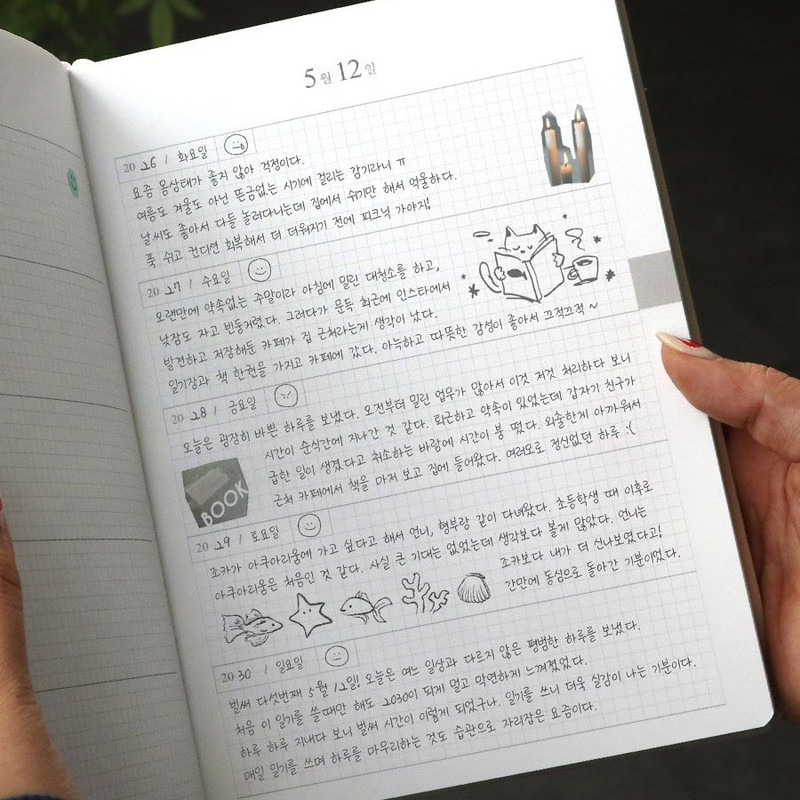 5월 12일
20 26 / 화요일
요즘 몸상태가 좋지 않아 걱정이다.
여름도 겨울도 아닌 뜬금없는 시기에 걸리는 감기라니 ㅠ
날씨도 좋아서 다들 놀러다니는데 집에서 쉬기만 해서 억울하다.
푹 쉬고 컨디션 회복해서 더 더워지기 전에 피크닉 가야지!
20 27 / 수요일
오랜만에 약속없는 주말이라 아침에 밀린 대청소를 하고,
낮잠도 자고 빈둥거렸다. 그러다가 문득 최근에 인스타에서
발견하고 저장해둔 카페가 집 근처라는게 생각이 났다.
일기장과 책 한권을 가지고 카페에 갔다. 아늑하고 따뜻한 감성이 좋아서 끄적끄적 ~
20 28 / 금요일
오늘은 굉장히 바쁜 하루를 보냈다. 오전부터 밀린 업무가 많아서 이것 저것 처리하다 보니
시간이 순식간에 지나간 것 같다. 퇴근하고 약속이 있었는데 갑자기 친구가
급한 일이 생겼다고 취소하는 바람에 시간이 붕 떴다. 외출한게 아까워서
근처 카페에서 책을 마저 보고 집에 들어왔다. 여러모로 정신없던 하루 :(
BOOK
20 29 / 토요일
조카가 아쿠아리움에 가고 싶다고 해서 언니, 형부랑 같이 다녀왔다. 초등학생 때 이후로
아쿠아리움은 처음인 것 같다. 사실 큰 기대는 없었는데 생각보다 볼게 많았다. 언니는
조카보다 내가 더 신나보였다고!
간만에 동심으로 돌아간 기분이었다.
20 30 / 일요일
벌써 다섯번째 5월 12일! 오늘은 여느 일상과 다르지 않은 평범한 하루를 보냈다.
처음 이 일기를 쓸때만 해도 2030이 되게 멀고 막연하게 느껴졌었다.
하루 하루 지내다 보니 벌써 시간이 이렇게 되었구나. 일기를 쓰니 더욱 실감이 나는 기분이다.
매일 일기를 쓰며 하루를 마무리하는 것도 습관으로 자리잡은 요즘이다.